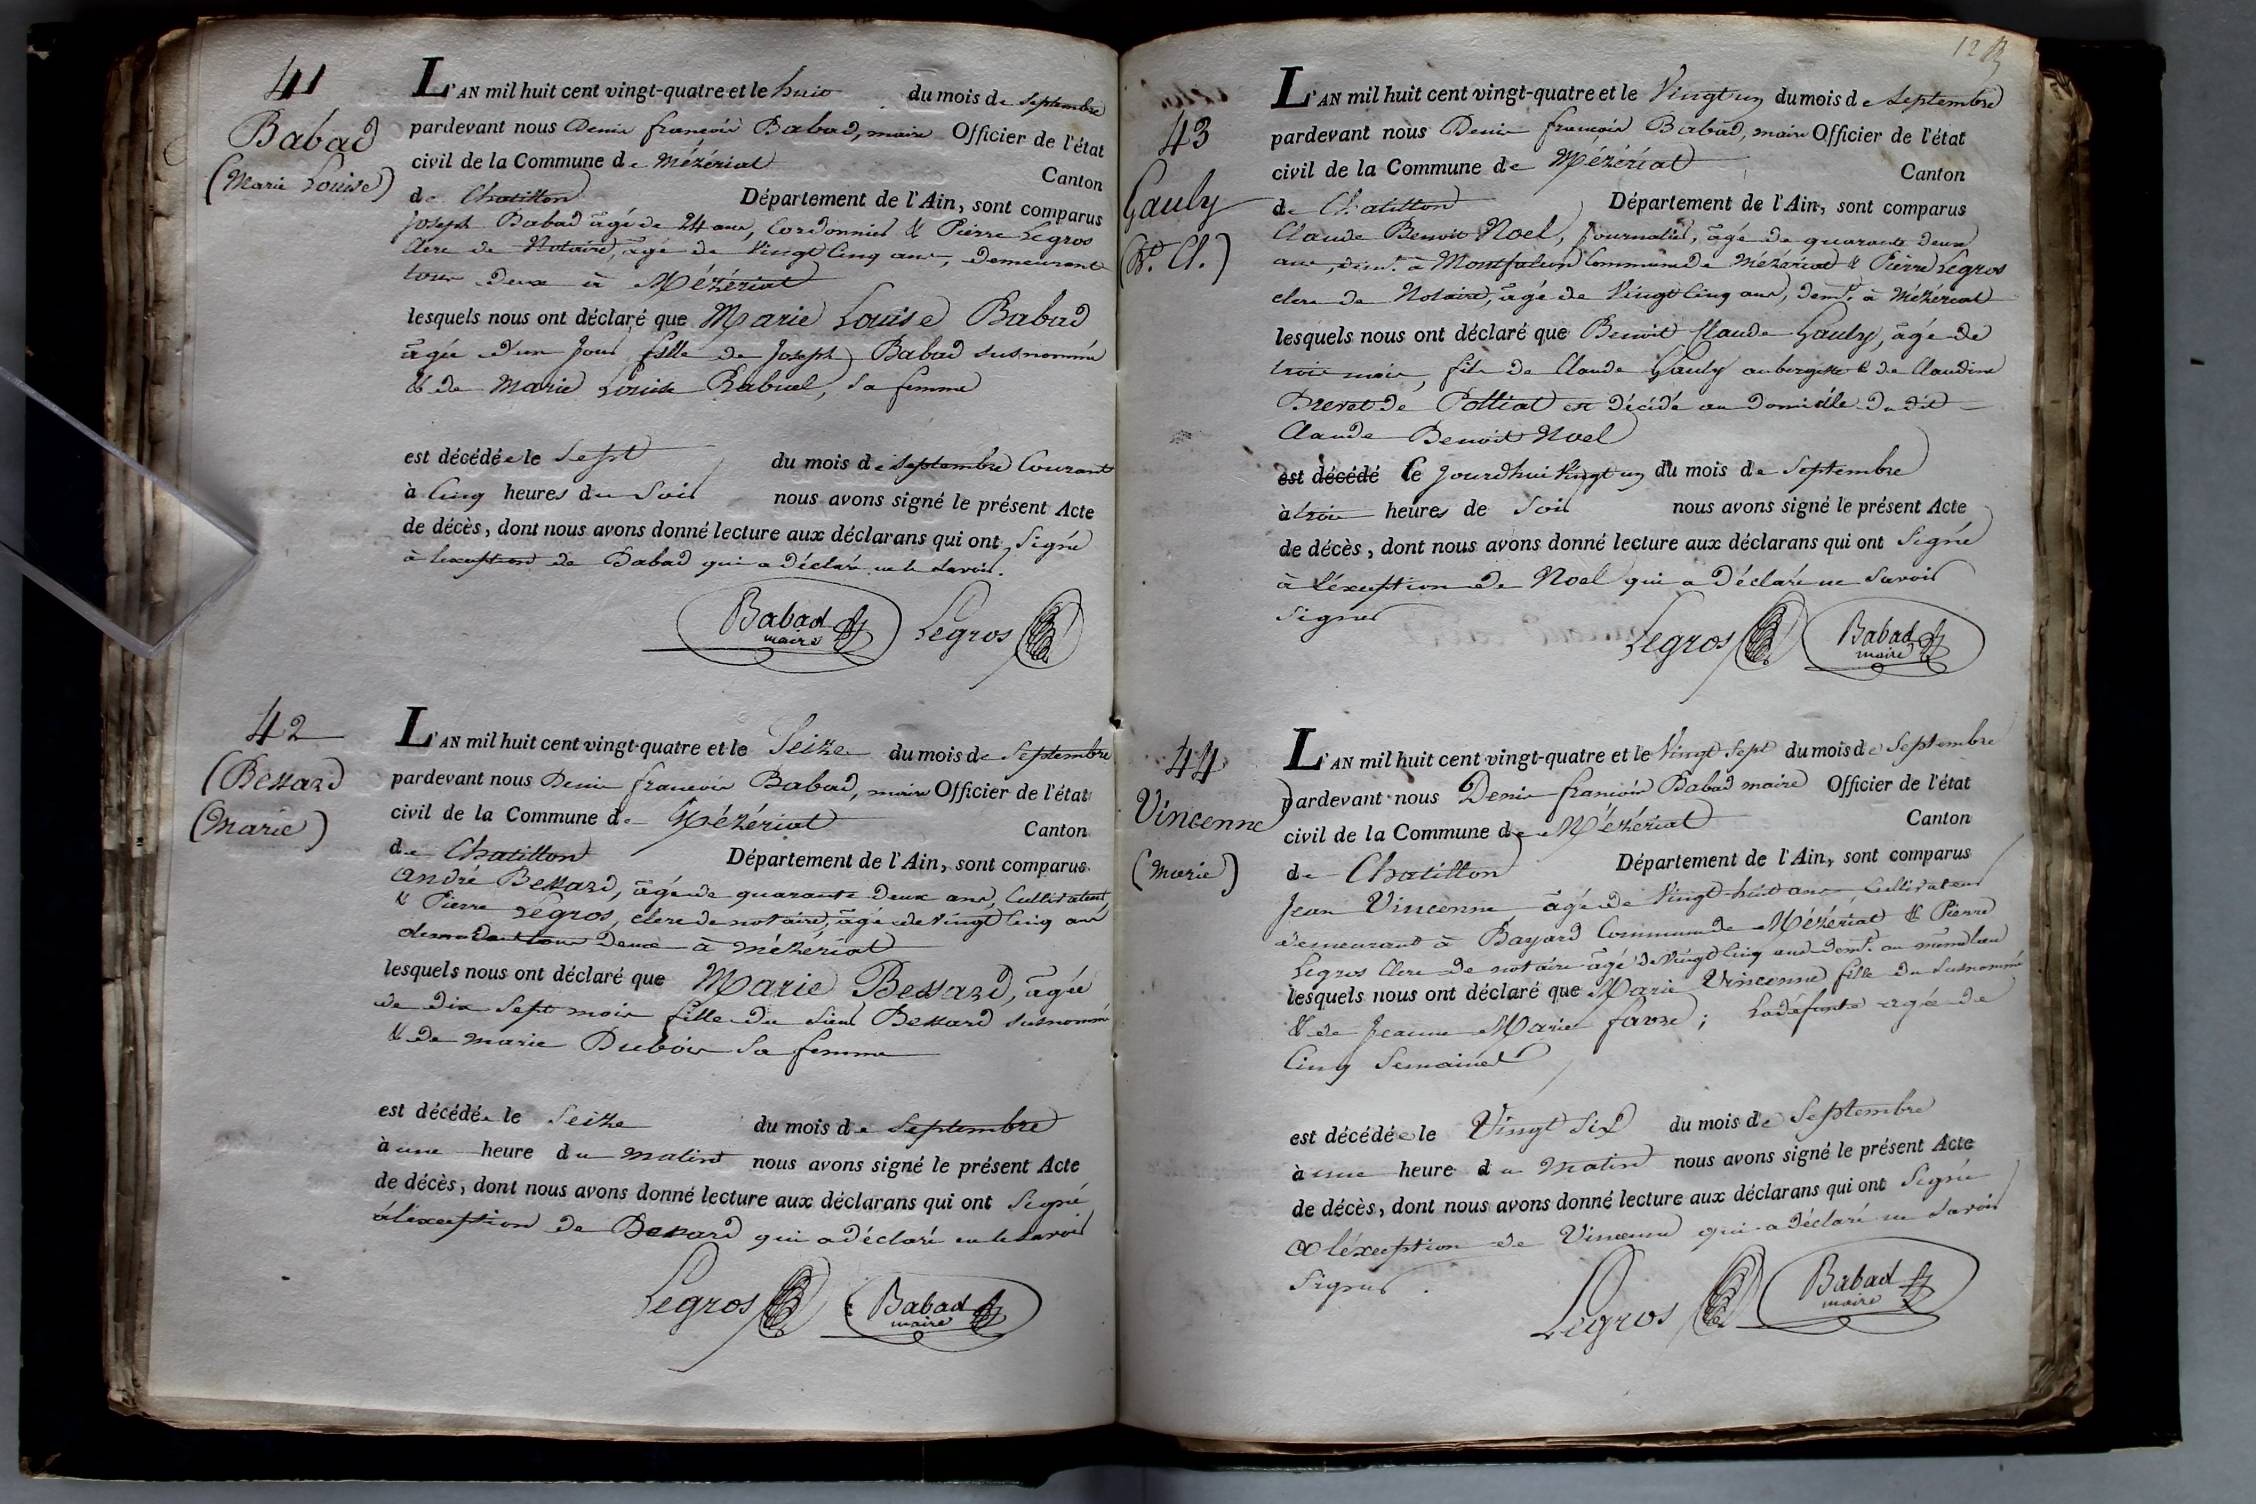 41
Babad
(Marie Louise)
L'AN mil huit cent vingt-quatre et le huit du mois de septembre
pardevant nous Denis françois Babad, maire Officier de l'état
civil de la Commune de Mézériat Canton
de Chatillon Département de l'Ain, sont comparus
Joseph Babad âgé de 24 ans, Cordonnier & Pierre Legros
clerc de Notaire, âgé de vingt cinq ans, demeurant
tous deux à Mézériat
lesquels nous ont déclaré que Marie Louise Babad
âgée d'un jour fille de Joseph Babad susnommé
& de Marie Louise Rabuel, sa femme
est décédée le Sept du mois de septembre Courant
à Cinq heures du Soir nous avons signé le présent Acte
de décès, dont nous avons donné lecture aux déclarans qui ont Signé
à l'exception de Babad qui a déclaré ne le savoir.
Babad maire Legros
42
(Bessard
(Marie)
L'AN mil huit cent vingt-quatre et le Seize du mois de Septembre
pardevant nous Denis françois Babad, maire Officier de l'état
civil de la Commune de Mézériat Canton
de Chatillon Département de l'Ain, sont comparus
andré Bessard, âgé de quarante deux ans, Cultivateur,
& Pierre Legros, clerc de notaire, âgé de vingt cinq ans
demeurant tous deux à mézériat
lesquels nous ont déclaré que Marie Bessard, âgée
de dix sept mois fille du Sieur Bessard susnommé
& de marie Dubois sa femme
est décédée le Seize du mois de Septembre
à une heure du matin nous avons signé le présent Acte
de décès, dont nous avons donné lecture aux déclarans qui ont Signé
à l'exception de Bessard qui a déclaré ne le savoir
Legros Babad maire
43
Gauly
(Bt. Cl.)
L'AN mil huit cent vingt-quatre et le Vingt un du mois de septembre
pardevant nous Denis françois Babad, maire Officier de l'état
civil de la Commune de Mézériat Canton
de Chatillon Département de l'Ain, sont comparus
Claude Benoit Noel, journalier, âgé de quarante deux
ans, demt. à Montfalcon Commune de Mézériat & Pierre Legros
clerc de Notaire, âgé de Vingt cinq ans, demt. à Mézériat
lesquels nous ont déclaré que Benoit Claude Gauly, âgé de
trois mois, fils de Claude Gauly aubergiste & de Claudine
Brevet de Polliat est décédé au domicile du dit
Claude Benoit Noel
est décédé Ce jourdhui Vingt un du mois de Septembre
à trois heures de Soir nous avons signé le présent Acte
de décès, dont nous avons donné lecture aux déclarans qui ont Signé
à l'éxception de Noel qui a déclaré ne Savoir
Signer
Legros Babad maire
44
Vincenne
(Marie)
L'AN mil huit cent vingt-quatre et le Vingt Sept du mois de Septembre
pardevant nous Denis françois Babad maire Officier de l'état
civil de la Commune de Mézériat Canton
de Chatillon Département de l'Ain, sont comparus
Jean Vincenne âgé de Vingt-huit ans Cultivateur
demeurant à Bayard Commune de Mézériat & Pierre
Legros Clerc de notaire âgé de Vingt Cinq ans demt. au même lieu
lesquels nous ont déclaré que Marie Vincenne fille du Susnommé
& de Jeanne Marie favre; La défunte agée de
Cinq Semaines
est décédée le Vingt Six du mois de Septembre
à une heure du Matin nous avons signé le présent Acte
de décès, dont nous avons donné lecture aux déclarans qui ont Signé
à l'éxception de Vincenne qui a déclaré ne Savoir
Signer.
Legros Babad maire